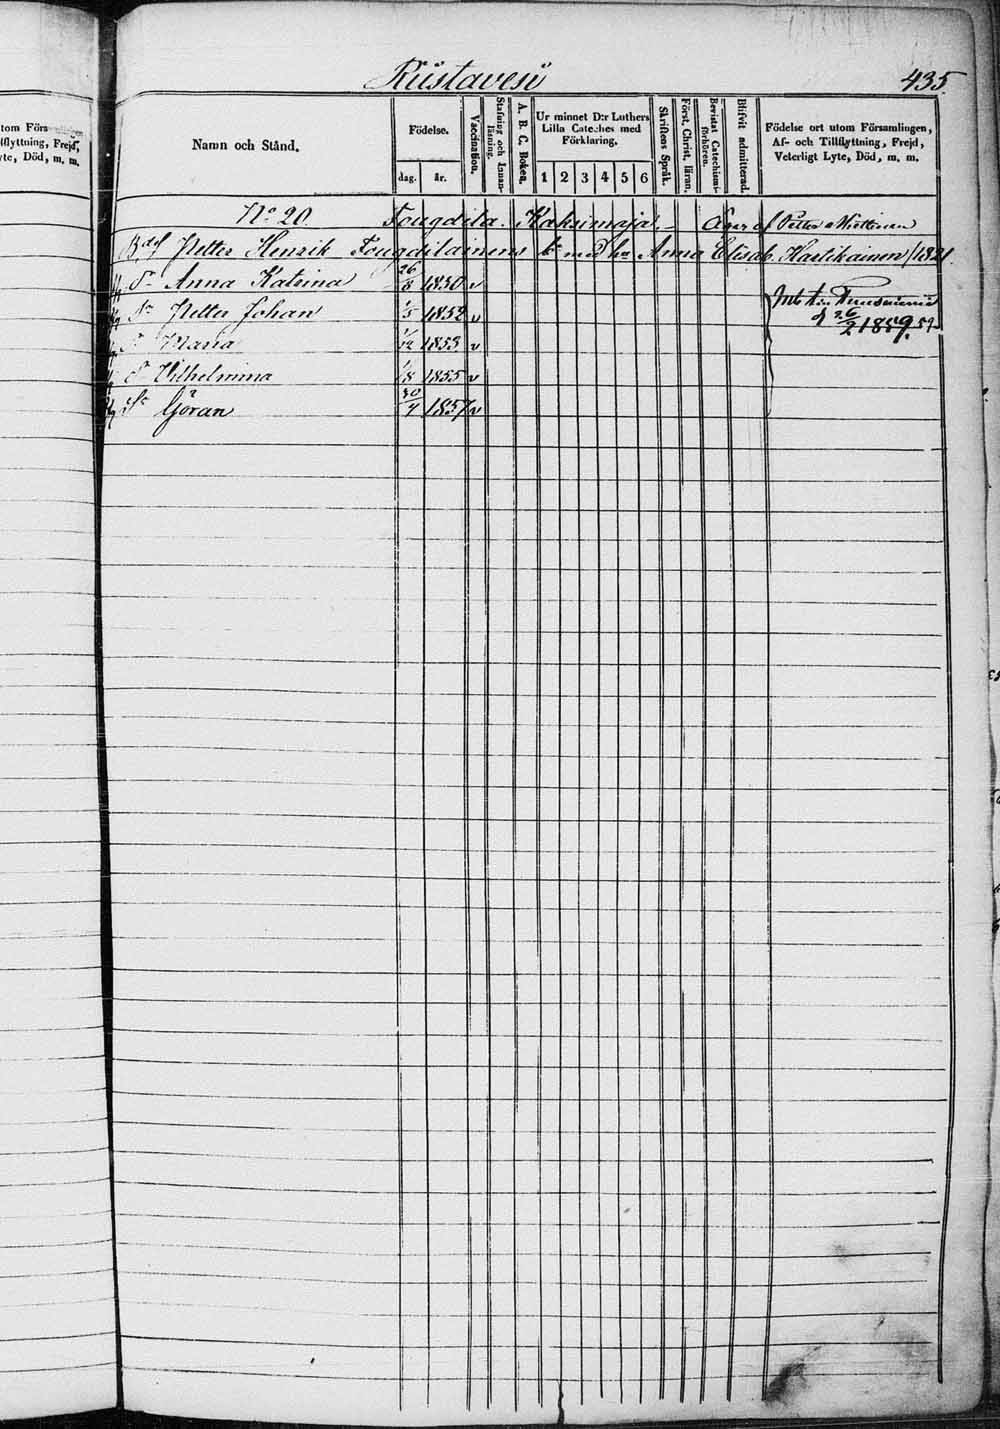 Rustavesi 435
tom Förs
flyttning, Frejd,
yte, Död, m. m.
Namn och Stånd.
Födelse.
dag. år.
Vaccination.
Stafning och Innanläsning.
A. B. C. Boken.
Ur minnet D:r Luthers
Lilla Cateches med
Förklaring.
1 2 3 4 5 6
Skriftens Språk.
Först. Christ. läran.
Bevistat Catechismiförhören.
Blifvit admitterad.
Födelse ort utom Församlingen,
Af- och Tillflyttning, Frejd,
Veterligt Lyte, Död, m. m.
No 20. Fougdila. Kaksimaja. Petter Miettinen
Petter Henrik Fougdilainens med Anna Elisab. Hartikainen /1821
Anna Katrina 26/8 1850 v
Petter Johan 1/5 1852 v
Maria 1/12 1853 v
26/2 1859. 59
Vilhelmina 1/8 1855 v
Göran 30/4 1857 v